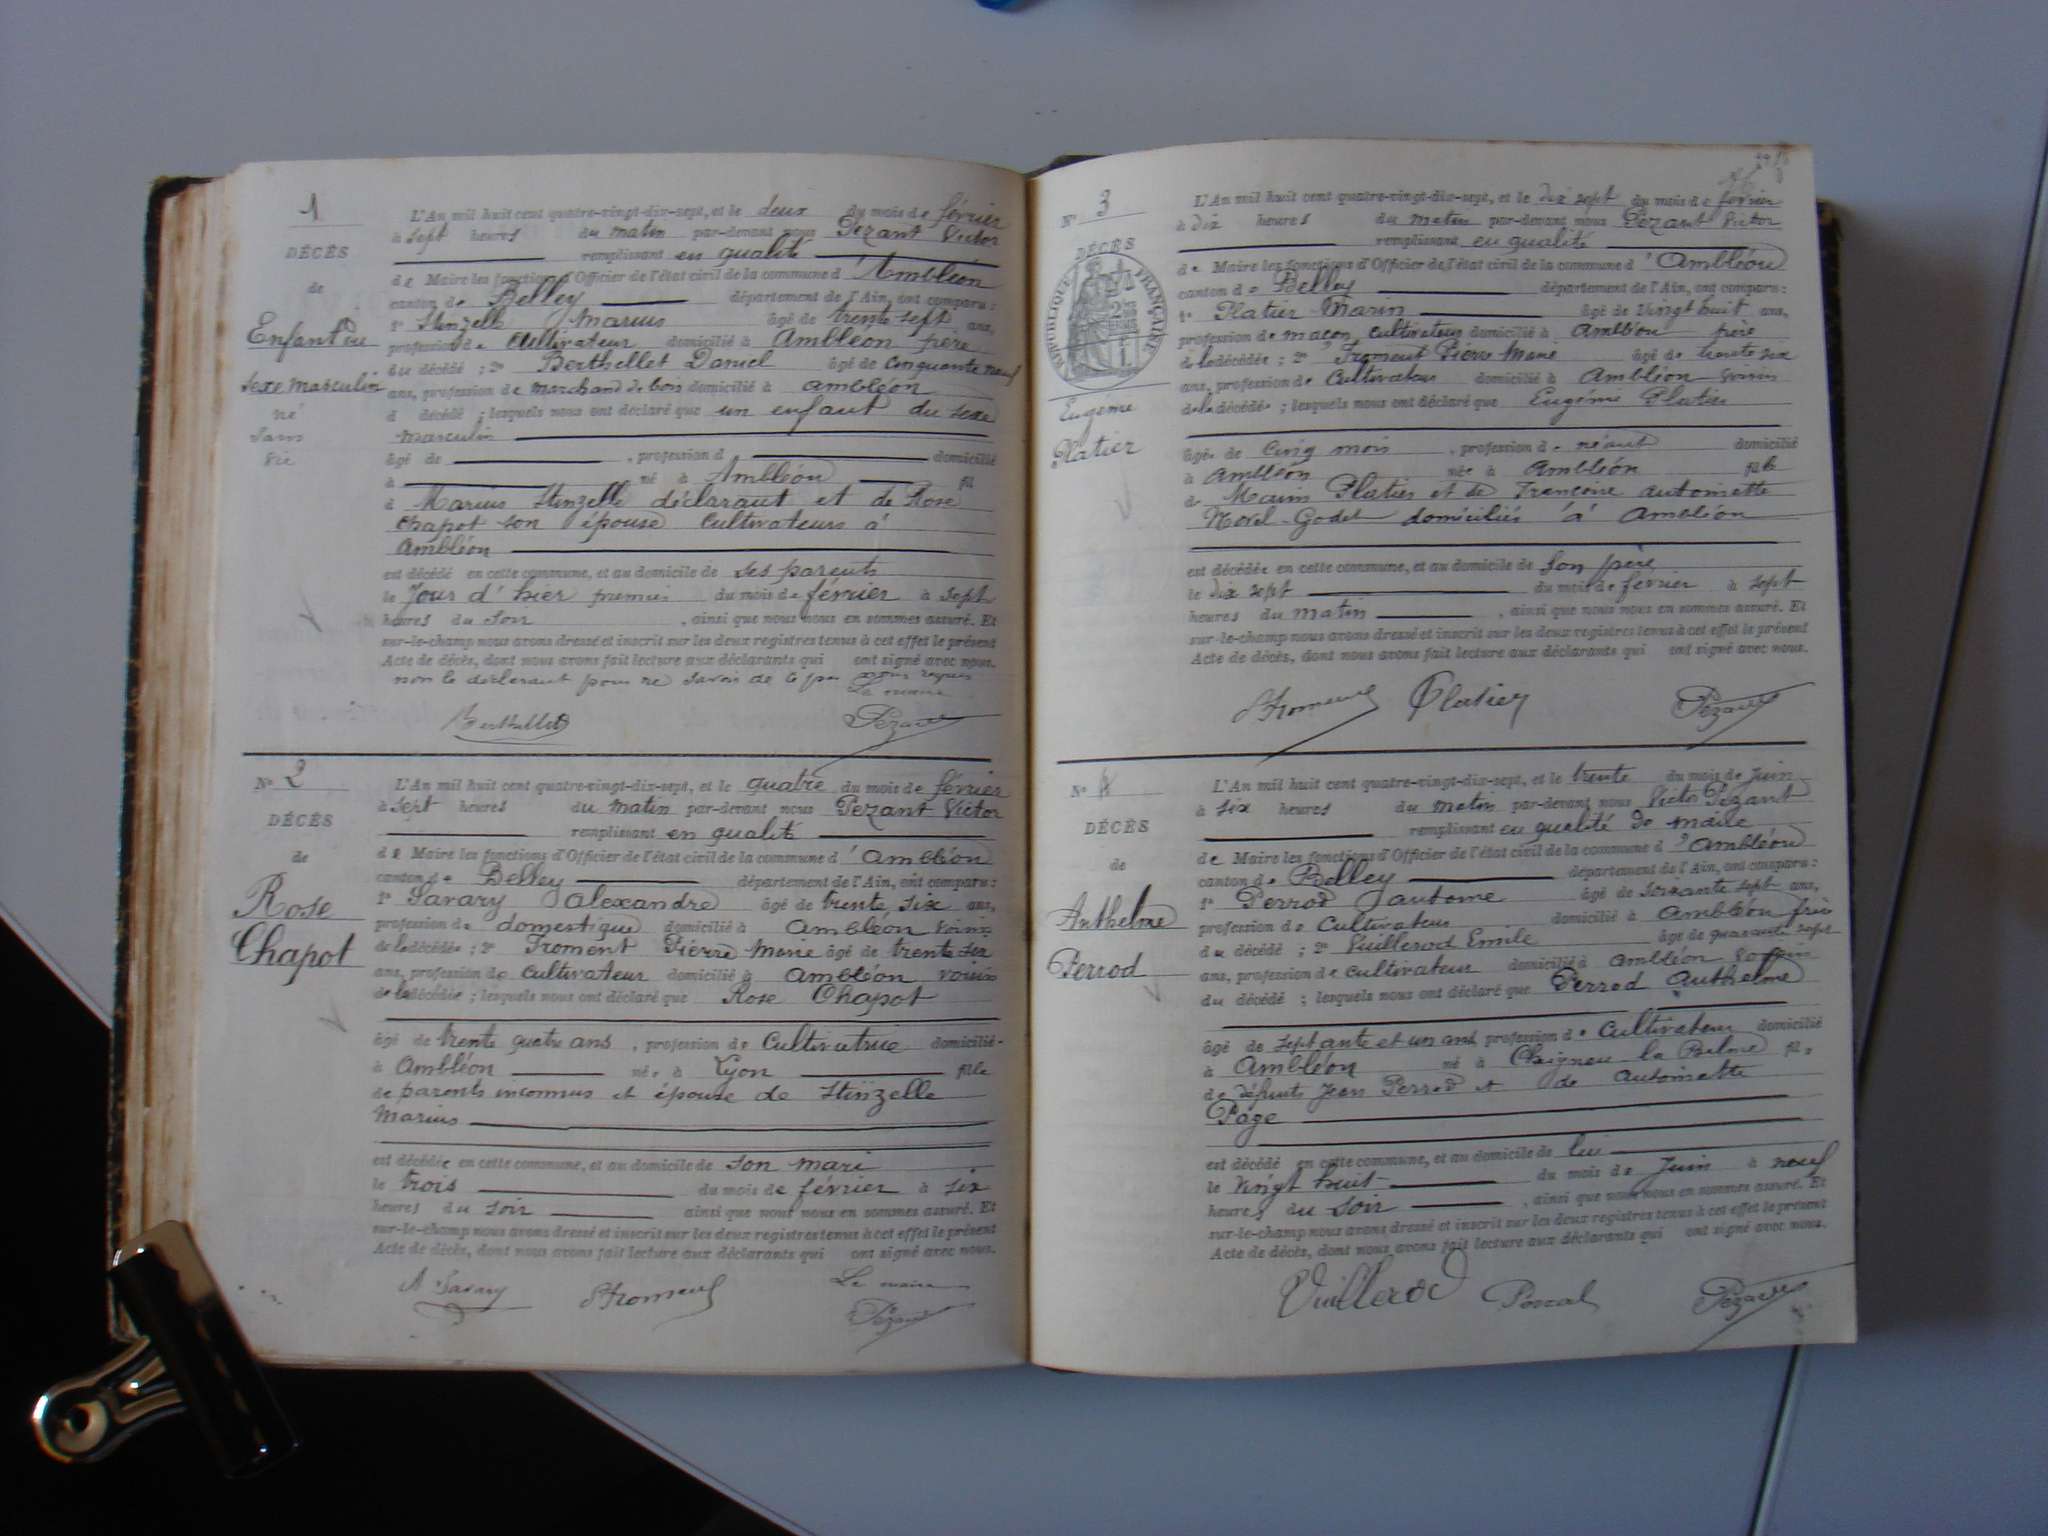 1
DÉCÈS
de
Enfant du
sexe masculin
né
sans
vie
L'An mil huit cent quatre-vingt-dix-sept, et le deux du mois de février
à sept heures du matin par-devant nous Pezant Victor
remplissant en qualité
de Maire les fonctions d'Officier de l'état civil de la commune d'Ambléon
canton de Belley département de l'Ain, ont comparu :
1° Stinzelle Marius âgé de trente sept ans,
profession de Cultivateur domicilié à Ambléon père
du décédé ; 2° Berthellet Daniel âgé de cinquante neuf
ans, profession de marchand de bois domicilié à ambléon
d décédé ; lesquels nous ont déclaré que un enfant du sexe
masculin
âgé de , profession d domicilié
à né à Ambléon fil
d Marius Stinzelle déclarant et de Rose
Chapot son épouse Cultivateurs à
Ambléon
est décédé en cette commune, et au domicile de ses parents
le Jour d'hier premier du mois de février à sept
heures du soir , ainsi que nous nous en sommes assuré. Et
sur-le-champ nous avons dressé et inscrit sur les deux registres tenus à cet effet le présent
Acte de décès, dont nous avons fait lecture aux déclarants qui ont signé avec nous.
non le déclarant pour ne savoir de ce
Le maire
Berthellet Pezant
N° 2
DÉCÈS
de
Rose
Chapot
L'An mil huit cent quatre-vingt-dix-sept, et le quatre du mois de février
à sept heures du matin par-devant nous Pezant Victor
remplissant en qualité
de Maire les fonctions d'Officier de l'état civil de la commune d'Ambléon
canton de Belley département de l'Ain, ont comparu :
1° Savary Alexandre âgé de trente six ans,
profession de domestique domicilié à Ambléon voisin
de la décédée ; 2° Froment Pierre Marie âgé de trente six
ans, profession de cultivateur domicilié à Ambléon voisin
de la décédée ; lesquels nous ont déclaré que Rose Chapot
âgé de trente quatre ans , profession de Cultivatrice domicilié
à Ambléon née à Lyon fille
de parents inconnus et épouse de Stinzelle
Marius
est décédée en cette commune, et au domicile de son mari
le trois du mois de février à six
heures du soir ainsi que nous nous en sommes assuré. Et
sur-le-champ nous avons dressé et inscrit sur les deux registres tenus à cet effet le présent
Acte de décès, dont nous avons fait lecture aux déclarants qui ont signé avec nous.
Le maire
A Savary Froment Pezant
N° 3
DÉCÈS
RÉPUBLIQUE FRANÇAISE
Eugénie
Platier
L'An mil huit cent quatre-vingt-dix-sept, et le dix sept du mois de février
à dix heures du matin par-devant nous Pezant Victor
remplissant en qualité
de Maire les fonctions d'Officier de l'état civil de la commune d'Ambléon
canton de Belley département de l'Ain, ont comparu :
1° Platier Marin âgé de vingt huit ans,
profession de maçon cultivateur domicilié à Ambléon père
de la décédée ; 2° Froment Pierre Marie âgé de trente six
ans, profession de Cultivateur domicilié à Ambléon voisin
de la décédée ; lesquels nous ont déclaré que Eugénie Platier
âgée de cinq mois , profession de néant domicilié
à Ambléon née à Ambléon fille
de Marin Platier et de Françoise Antoinette
Morel-Godet domiciliés à Ambléon
est décédée en cette commune, et au domicile de son père
le dix sept du mois de février à sept
heures du matin , ainsi que nous nous en sommes assuré. Et
sur-le-champ nous avons dressé et inscrit sur les deux registres tenus à cet effet le présent
Acte de décès, dont nous avons fait lecture aux déclarants qui ont signé avec nous.
Froment Platier Pezant
N° 4
DÉCÈS
de
Anthelme
Perrod
L'An mil huit cent quatre-vingt-dix-sept, et le trente du mois de juin
à six heures du matin par-devant nous Victor Pezant
remplissant en qualité de maire
de Maire les fonctions d'Officier de l'état civil de la commune d'Ambléon
canton de Belley département de l'Ain, ont comparu :
1° Perrod Antoine âgé de soixante sept ans,
profession de Cultivateur domicilié à Ambléon frère
du décédé ; 2° Vuillerod Emile âgé de quarante sept
ans, profession de cultivateur domicilié à Ambléon voisin
du décédé ; lesquels nous ont déclaré que Perrod Anthelme
âgé de septante et un ans profession de Cultivateur domicilié
à Ambléon né à Cheignieu la Balme fils
de défunts Jean Perrod et de Antoinette
Page
est décédé en cette commune, et au domicile de lui
le vingt huit du mois de juin à neuf
heures du soir , ainsi que nous nous en sommes assuré. Et
sur-le-champ nous avons dressé et inscrit sur les deux registres tenus à cet effet le présent
Acte de décès, dont nous avons fait lecture aux déclarants qui ont signé avec nous.
Vuillerod Pezant